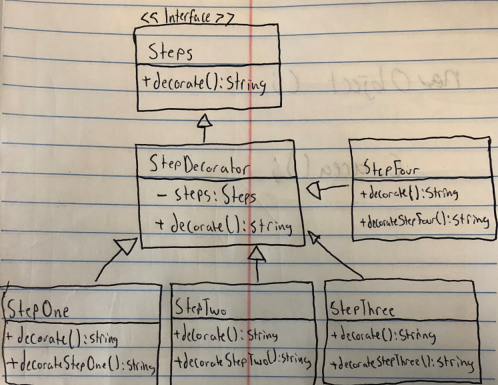 << Interface >>
Steps
+decorate():String
StepDecorator
- steps: Steps
+ decorate(): String
StepFour
+decorate():String
+decorateStepFour():String
StepOne
+ decorate(): string
+decorateStepOne():String
StepTwo
+decorate():String
+decorateStepTwo():string
StepThree
+decorate(): String
+decorateStepThree():String